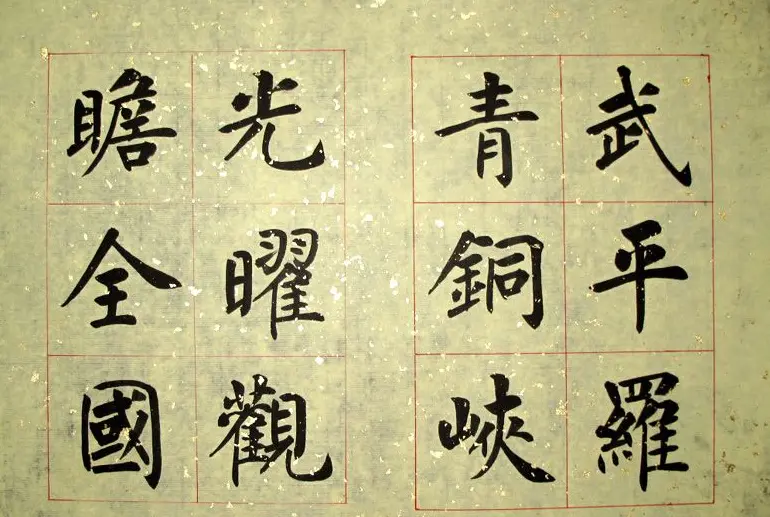 武平羅
青銅峽
光曜觀
瞻全國